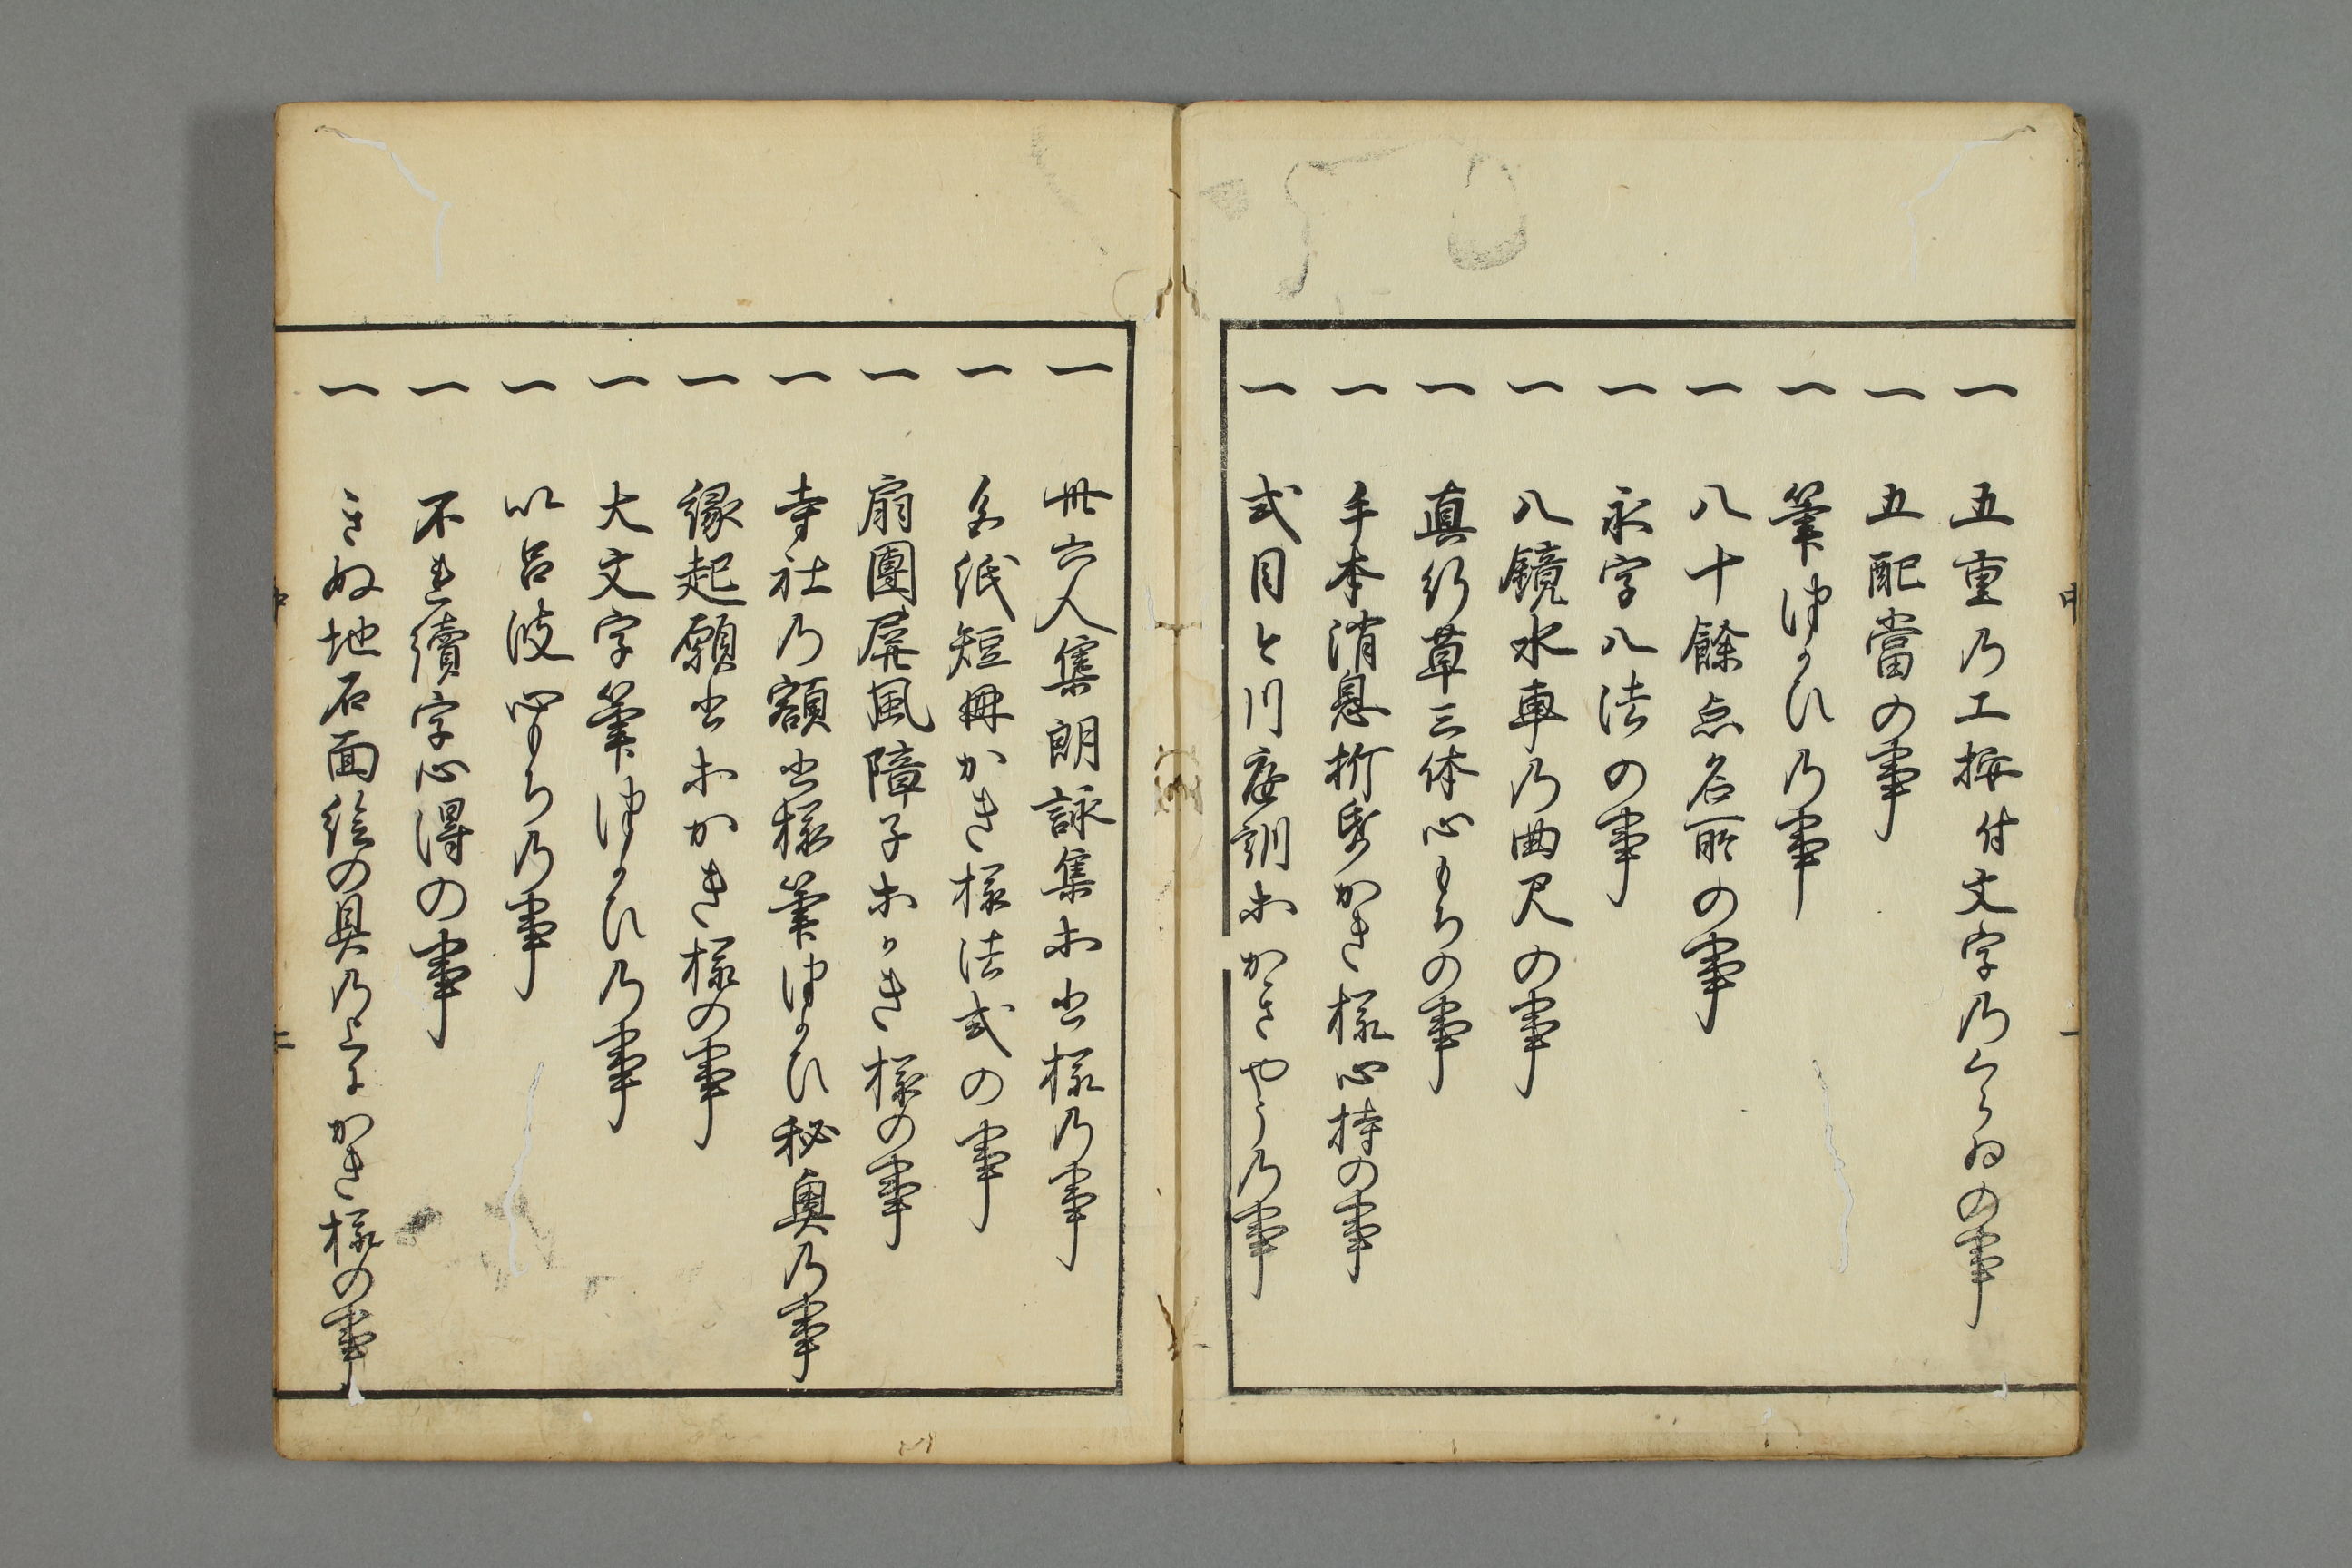 一 五重乃工按付文字乃くらゐの事
一 五配當の事
一 筆つかひ乃事
一 八十餘点名所の事
一 永字八法の事
一 八鏡水車乃曲尺の事
一 真行草三体心もちの事
一 手本消息折帋かき様心持の事
一 式目今川庭訓等かきやう乃事
一 卅六人集朗詠集等書様乃事
一 色紙短冊かき様法式の事
一 扇團屏風障子等かき様の事
一 寺社乃額書様筆つかひ秘奥乃事
一 縁起願書等かき様の事
一 大文字筆つかひ乃事
一 以呂波心もち乃事
一 不連續字心得の事
一 きぬ地石面絵の具乃上にかき様の事
中
一